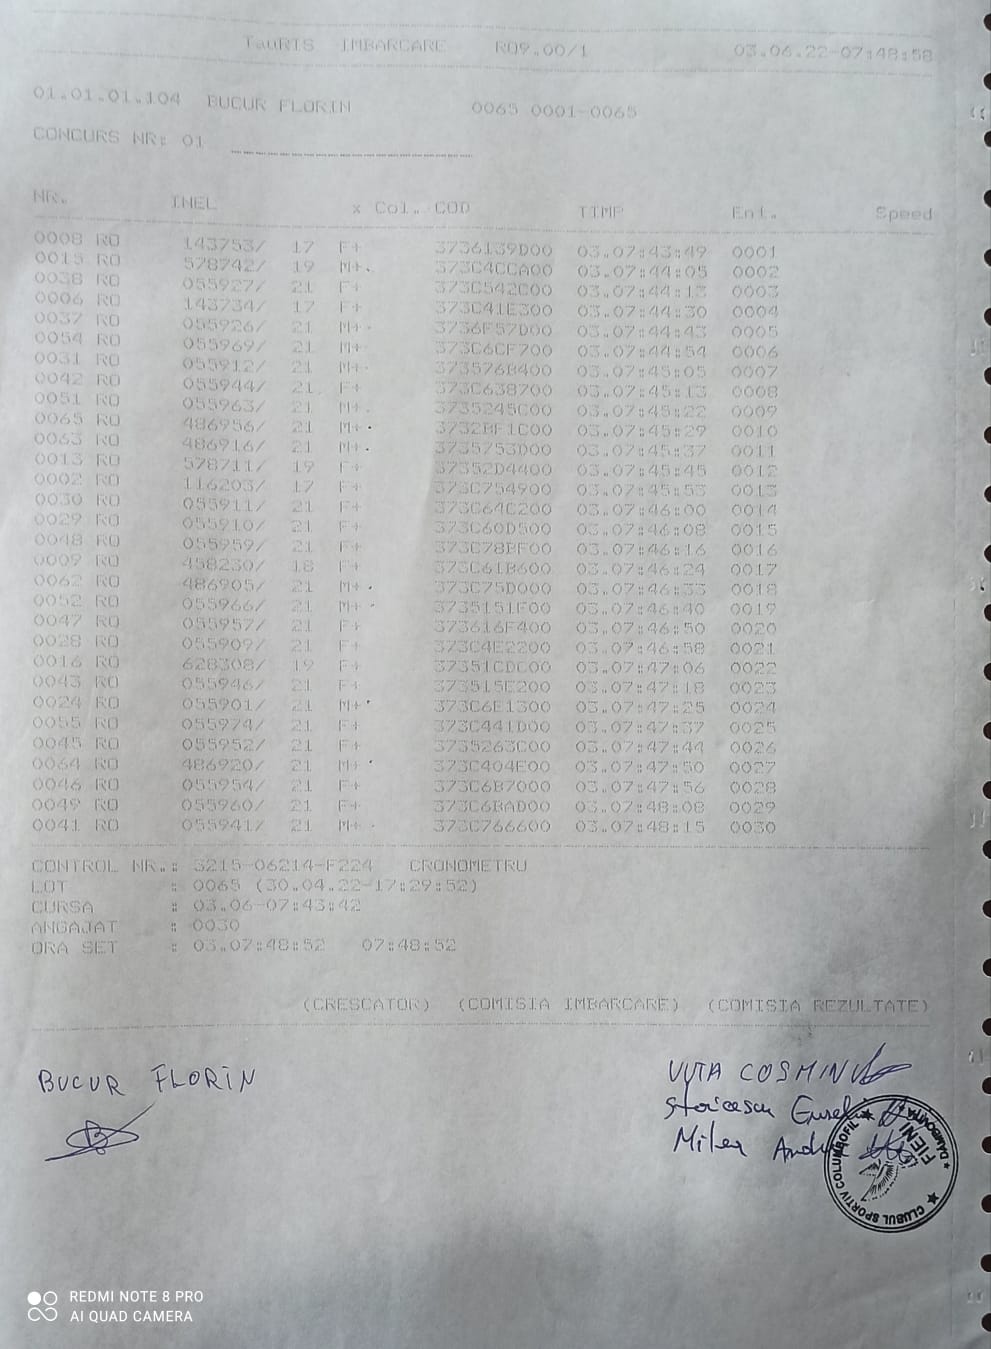 TauRIS IMBARCARE RO9.00/1 03.06.22-07:48:58
01.01.01.104 BUCUR FLORIN 0065 0001-0065
CONCURS NR: 01
NR. INEL x Col. COD TIMP Ent. Speed
0008 RO 143753/ 17 F+ 3736139D00 03.07:43:49 0001
0015 RO 578742/ 19 M+. 373C4CCA00 03.07:44:05 0002
0038 RO 055927/ 21 F+ 373C542C00 03.07:44:13 0003
0006 RO 143734/ 17 F+ 373C41E300 03.07:44:30 0004
0037 RO 055926/ 21 M+. 3736F57D00 03.07:44:43 0005
0054 RO 055969/ 21 M+ 373C6CF700 03.07:44:54 0006
0031 RO 055912/ 21 M+. 3735768400 03.07:45:05 0007
0042 RO 055944/ 21 F+ 373C638700 03.07:45:13 0008
0051 RO 055963/ 21 M+. 3735245C00 03.07:45:22 0009
0065 RO 486956/ 21 M+. 3732BF1C00 03.07:45:29 0010
0063 RO 486916/ 21 M+. 3735753D00 03.07:45:37 0011
0013 RO 578711/ 19 F+ 37352D4400 03.07:45:45 0012
0002 RO 116203/ 17 F+ 373C754900 03.07:45:53 0013
0030 RO 055911/ 21 F+ 373C64C200 03.07:46:00 0014
0029 RO 055910/ 21 F+ 373C60D500 03.07:46:08 0015
0048 RO 055959/ 21 F+ 373C78BF00 03.07:46:16 0016
0009 RO 458230/ 18 F+ 373C61B600 03.07:46:24 0017
0062 RO 486905/ 21 M+. 373C75D000 03.07:46:33 0018
0052 RO 055966/ 21 M+. 3735151F00 03.07:46:40 0019
0047 RO 055957/ 21 F+ 373616F400 03.07:46:50 0020
0028 RO 055909/ 21 F+ 373C4E2200 03.07:46:58 0021
0016 RO 628308/ 19 F+ 37351CDC00 03.07:47:06 0022
0043 RO 055946/ 21 F+ 373515E200 03.07:47:18 0023
0024 RO 055901/ 21 M+. 373C6E1300 03.07:47:25 0024
0055 RO 055974/ 21 F+ 373C441D00 03.07:47:37 0025
0045 RO 055952/ 21 F+ 3735263C00 03.07:47:44 0026
0064 RO 486920/ 21 M+. 373C404E00 03.07:47:50 0027
0046 RO 055954/ 21 F+ 373C6B7000 03.07:47:56 0028
0049 RO 055960/ 21 F+ 373C6BAD00 03.07:48:08 0029
0041 RO 055941/ 21 M+. 373C766600 03.07:48:15 0030
CONTROL NR.: 3215-06214-F224 CRONOMETRU
LOT : 0065 (30.04.22-17:29:52)
CURSA : 03.06-07:43:42
ANGAJAT : 0030
ORA SET : 03.07:48:52 07:48:52
(CRESCATOR) (COMISIA IMBARCARE) (COMISIA REZULTATE)
BUCUR FLORIN
VUTA COSMIN
Stoicescu
Milea
CLUBUL SPORTIV COLUMBOFIL
DAMBOVITA
FIENI
REDMI NOTE 8 PRO
AI QUAD CAMERA